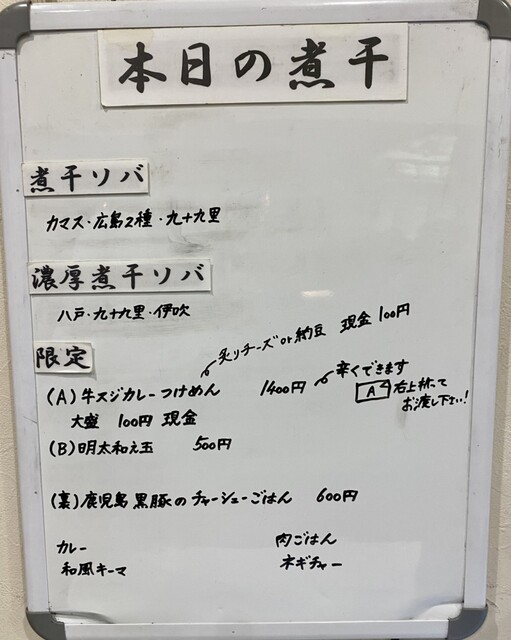 本日の煮干
煮干ソバ
カマス・広島2種・九十九里
濃厚煮干ソバ
八戸・九十九里・伊吹
限定
炙りチーズor納豆 現金100円
(A)牛スジカレーつけめん 1400円 辛くできます
大盛 100円 現金
A 右上折って
お渡し下さい!
(B)明太和え玉 500円
(裏)鹿児島黒豚のチャーシューごはん 600円
カレー 肉ごはん
和風キーマ ネギチャー